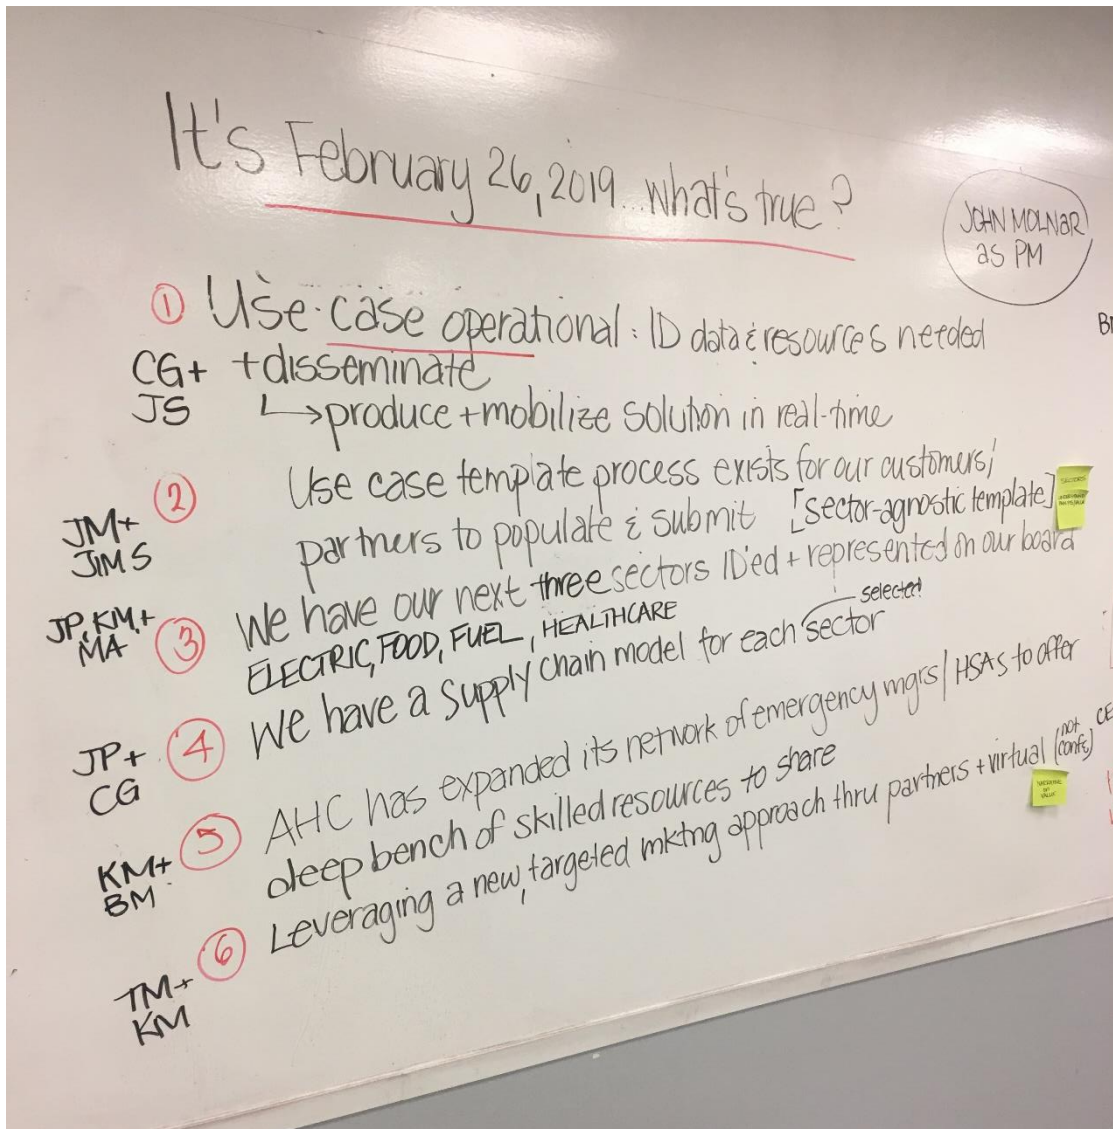 It's February 26, 2019...what's true?
JOHN MOLNAR
as PM
① Use case operational: ID data & resources needed
CG+ + disseminate
JS ↳ produce + mobilize solution in real-time
② Use case template process exists for our customers/
JM+ partners to populate & submit [sector-agnostic template]
JIM S
SECTORS
JP, KM, + ③ We have our next three sectors ID'ed + represented on our board
MA ELECTRIC, FOOD, FUEL, HEALTHCARE
selected
JP+ ④ We have a supply chain model for each sector
CG
KM+ ⑤ AHC has expanded its network of emergency mgrs/HSAs to offer
BM deep bench of skilled resources to share
TM+ ⑥ Leveraging a new, targeted mktng approach thru partners + virtual (not confs)
KM
VALUE